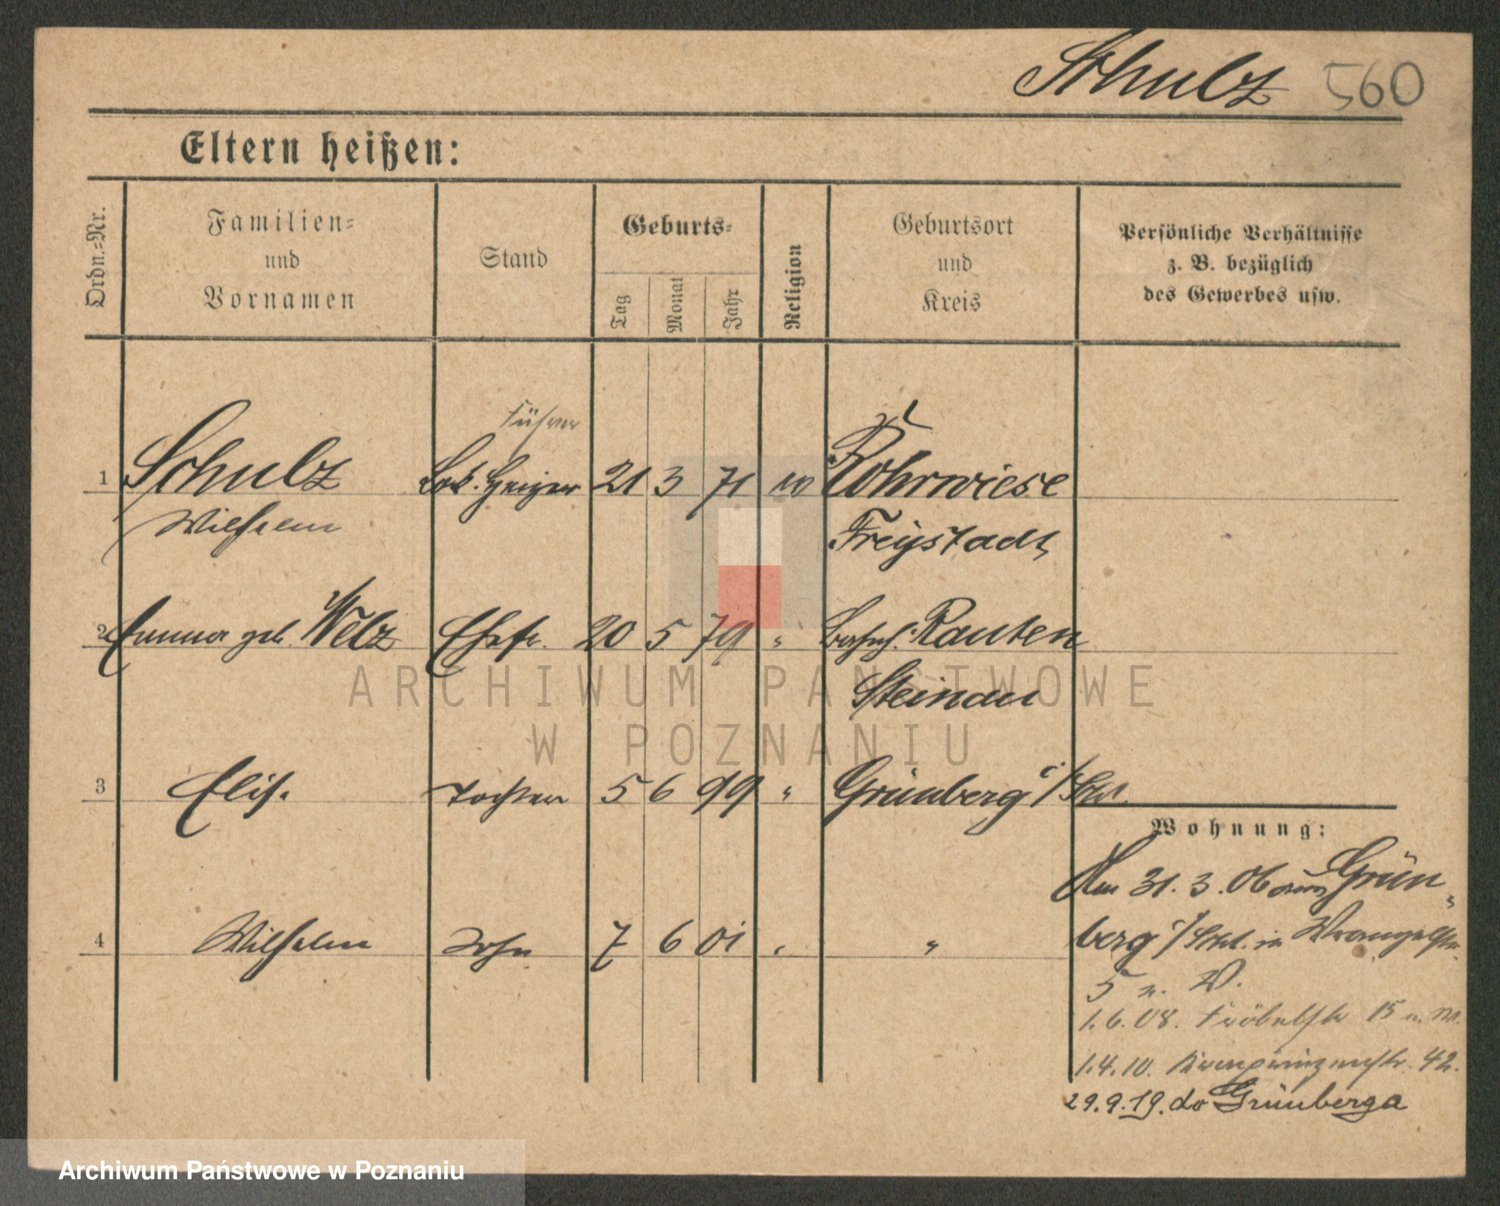 Schulz 560
Eltern heißen:
Ordn.-Nr.
Familien-
und
Vornamen
Stand
Geburts-
Tag
Monat
Jahr
Religion
Geburtsort
und
Kreis
Persönliche Verhältnisse
z. B. bezüglich
des Gewerbes usw.
Führer
1 Schulz Lok. Heizer 21 3 71 Rohrwiese
Wilhelm Freystadt
2 Emma geb. Welz Ehefr. 20 5 79 " Rauten
Steinau
3 Elis. Tochter 5 6 99 " Grünberg i/Schl.
Wohnung:
Am 31. 3. 06 aus Grün-
4 Wilhelm Sohn 7 6 01 " "
berg i/Schl. in Wrangelstr.
5 n. W.
1.6.08. Fröbelstr 15 n. W.
1.4.10. Kronprinzenstr. 42.
29.9.19. do Grünberga
ARCHIWUM PAŃSTWOWE
W POZNANIU
Archiwum Państwowe w Poznaniu